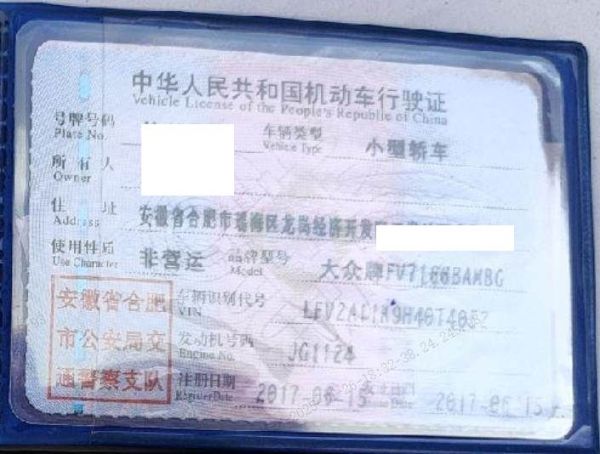 中华人民共和国机动车行驶证
Vehicle License of the People's Republic of China
号牌号码 车辆类型 小型轿车
Plate No. Vehicle Type
所有人
Owner
住址 安徽省合肥市瑶海区龙岗经济开发区
Address
使用性质 非营运 品牌型号 大众牌FV7166BAMBG
Use Character Model
安徽省合肥 车辆识别代号
VIN
市公安局交 发动机号码 JG1124
Engine No.
通警察支队 注册日期 2017-06-15 2017-06-15
Register Date